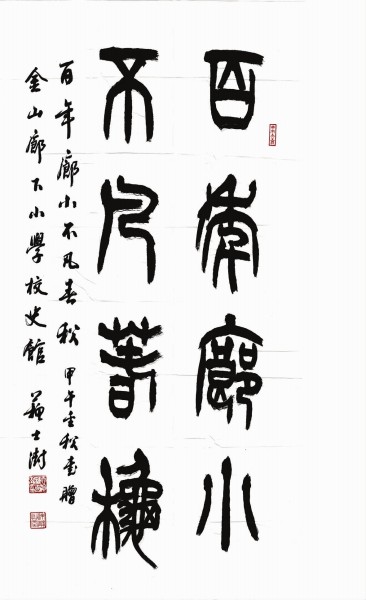 百年廊小
不凡春秋
百年廊小不凡春秋 甲午金秋書贈
金山廊下小學校史館 蘇士澍